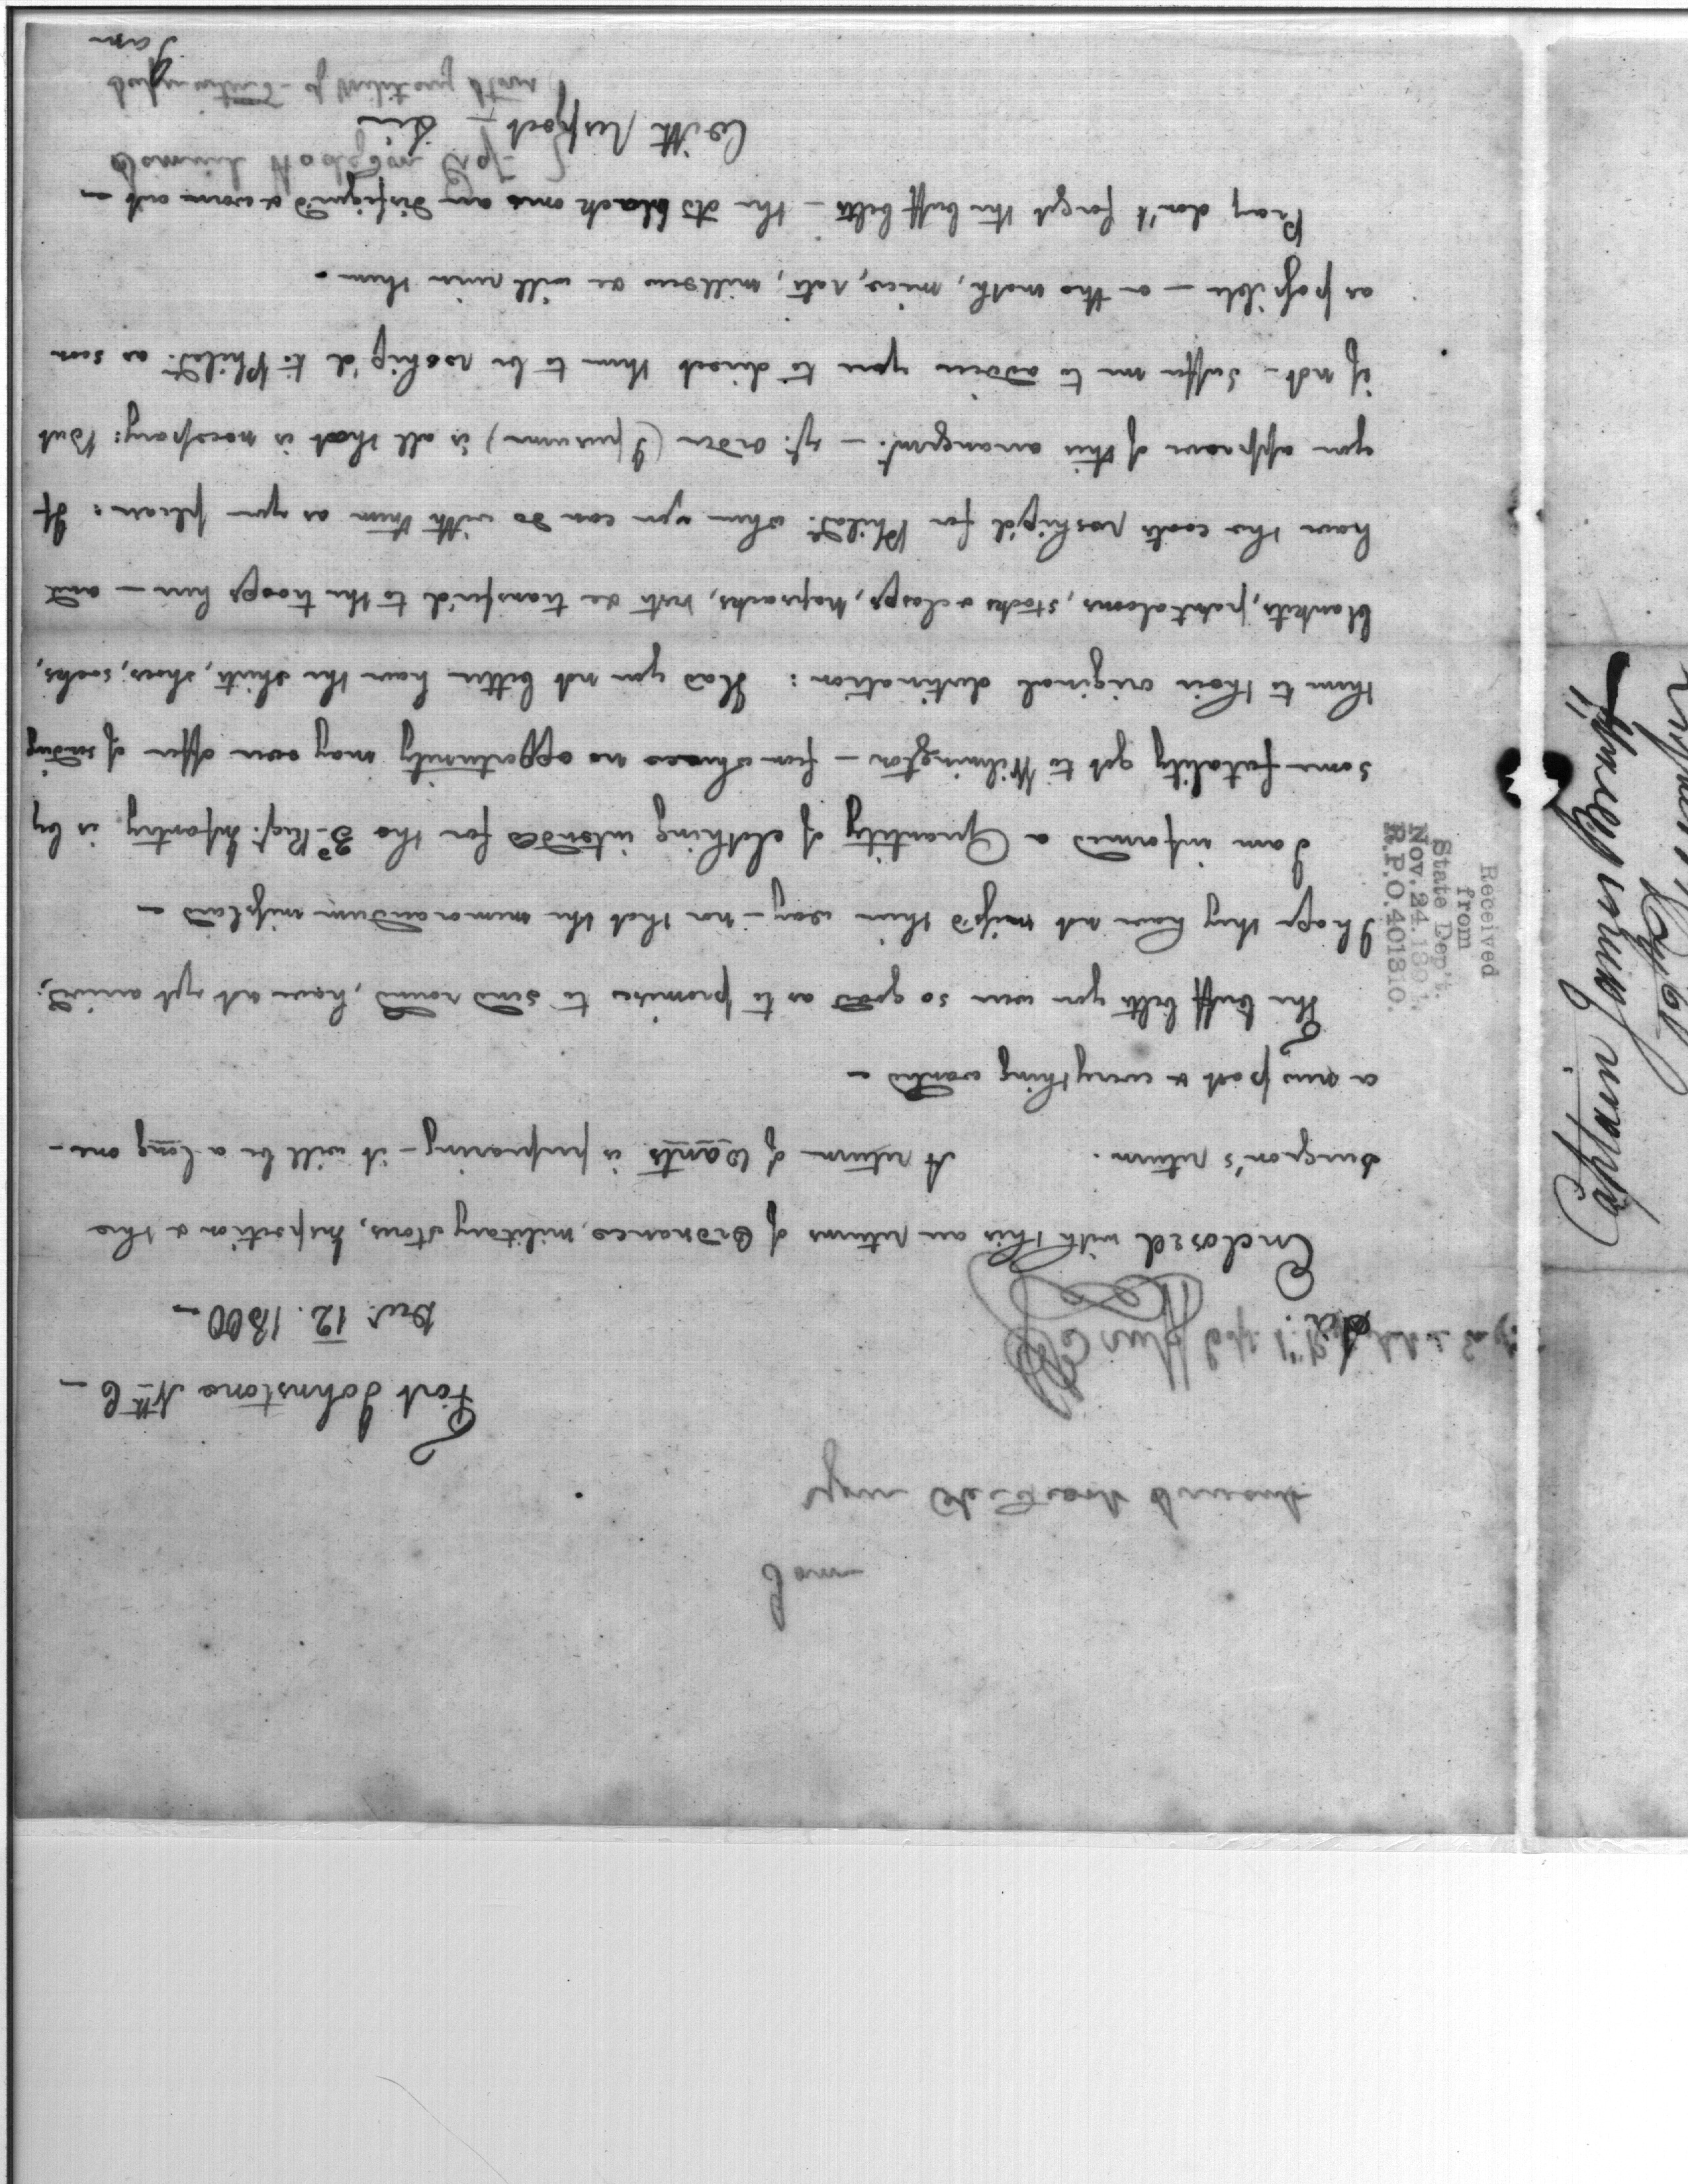 Fort Johnstone Nth C —
Decr. 12. 1800 —
Sir.
Enclosed with this are returns of Ordnance, military stores, Inspection & the
surgeon's return. A return of Wants is preparing — it will be a long one —
a new post & everything wanted —
The buff belts you were so good as to promise to send round, have not yet arrived;
I hope they have not miss'd their way — nor that the memorandum mislaid —
I am informed a Quantity of clothing intended for the 3d Regt. Infantry is by
some fatality got to Wilmington — from whence no opportunity may soon offer of sending
them to their original destination : Had you not better have the shirts, shoes, socks,
blankets, pantaloons, stocks & clasps, knapsacks, vests &c transfer'd to the troops here — and
have the coats reship'd for Philad: when you can do with them as you please : If
you approve of this arrangemt. — yr. order (I presume) is all that is necessary: But
if not — suffer me to advise you to direct them to be reship'd to Philad: as soon
as possible — or the moth, mice, rats, mildew &c will ruin them —
Pray don't forget the buff belts — the old black ones are disfigured & worn out —
With respect — Sir
Received
from
State Dep't.
Nov. 24.
R.P.O. 401310.
Captain